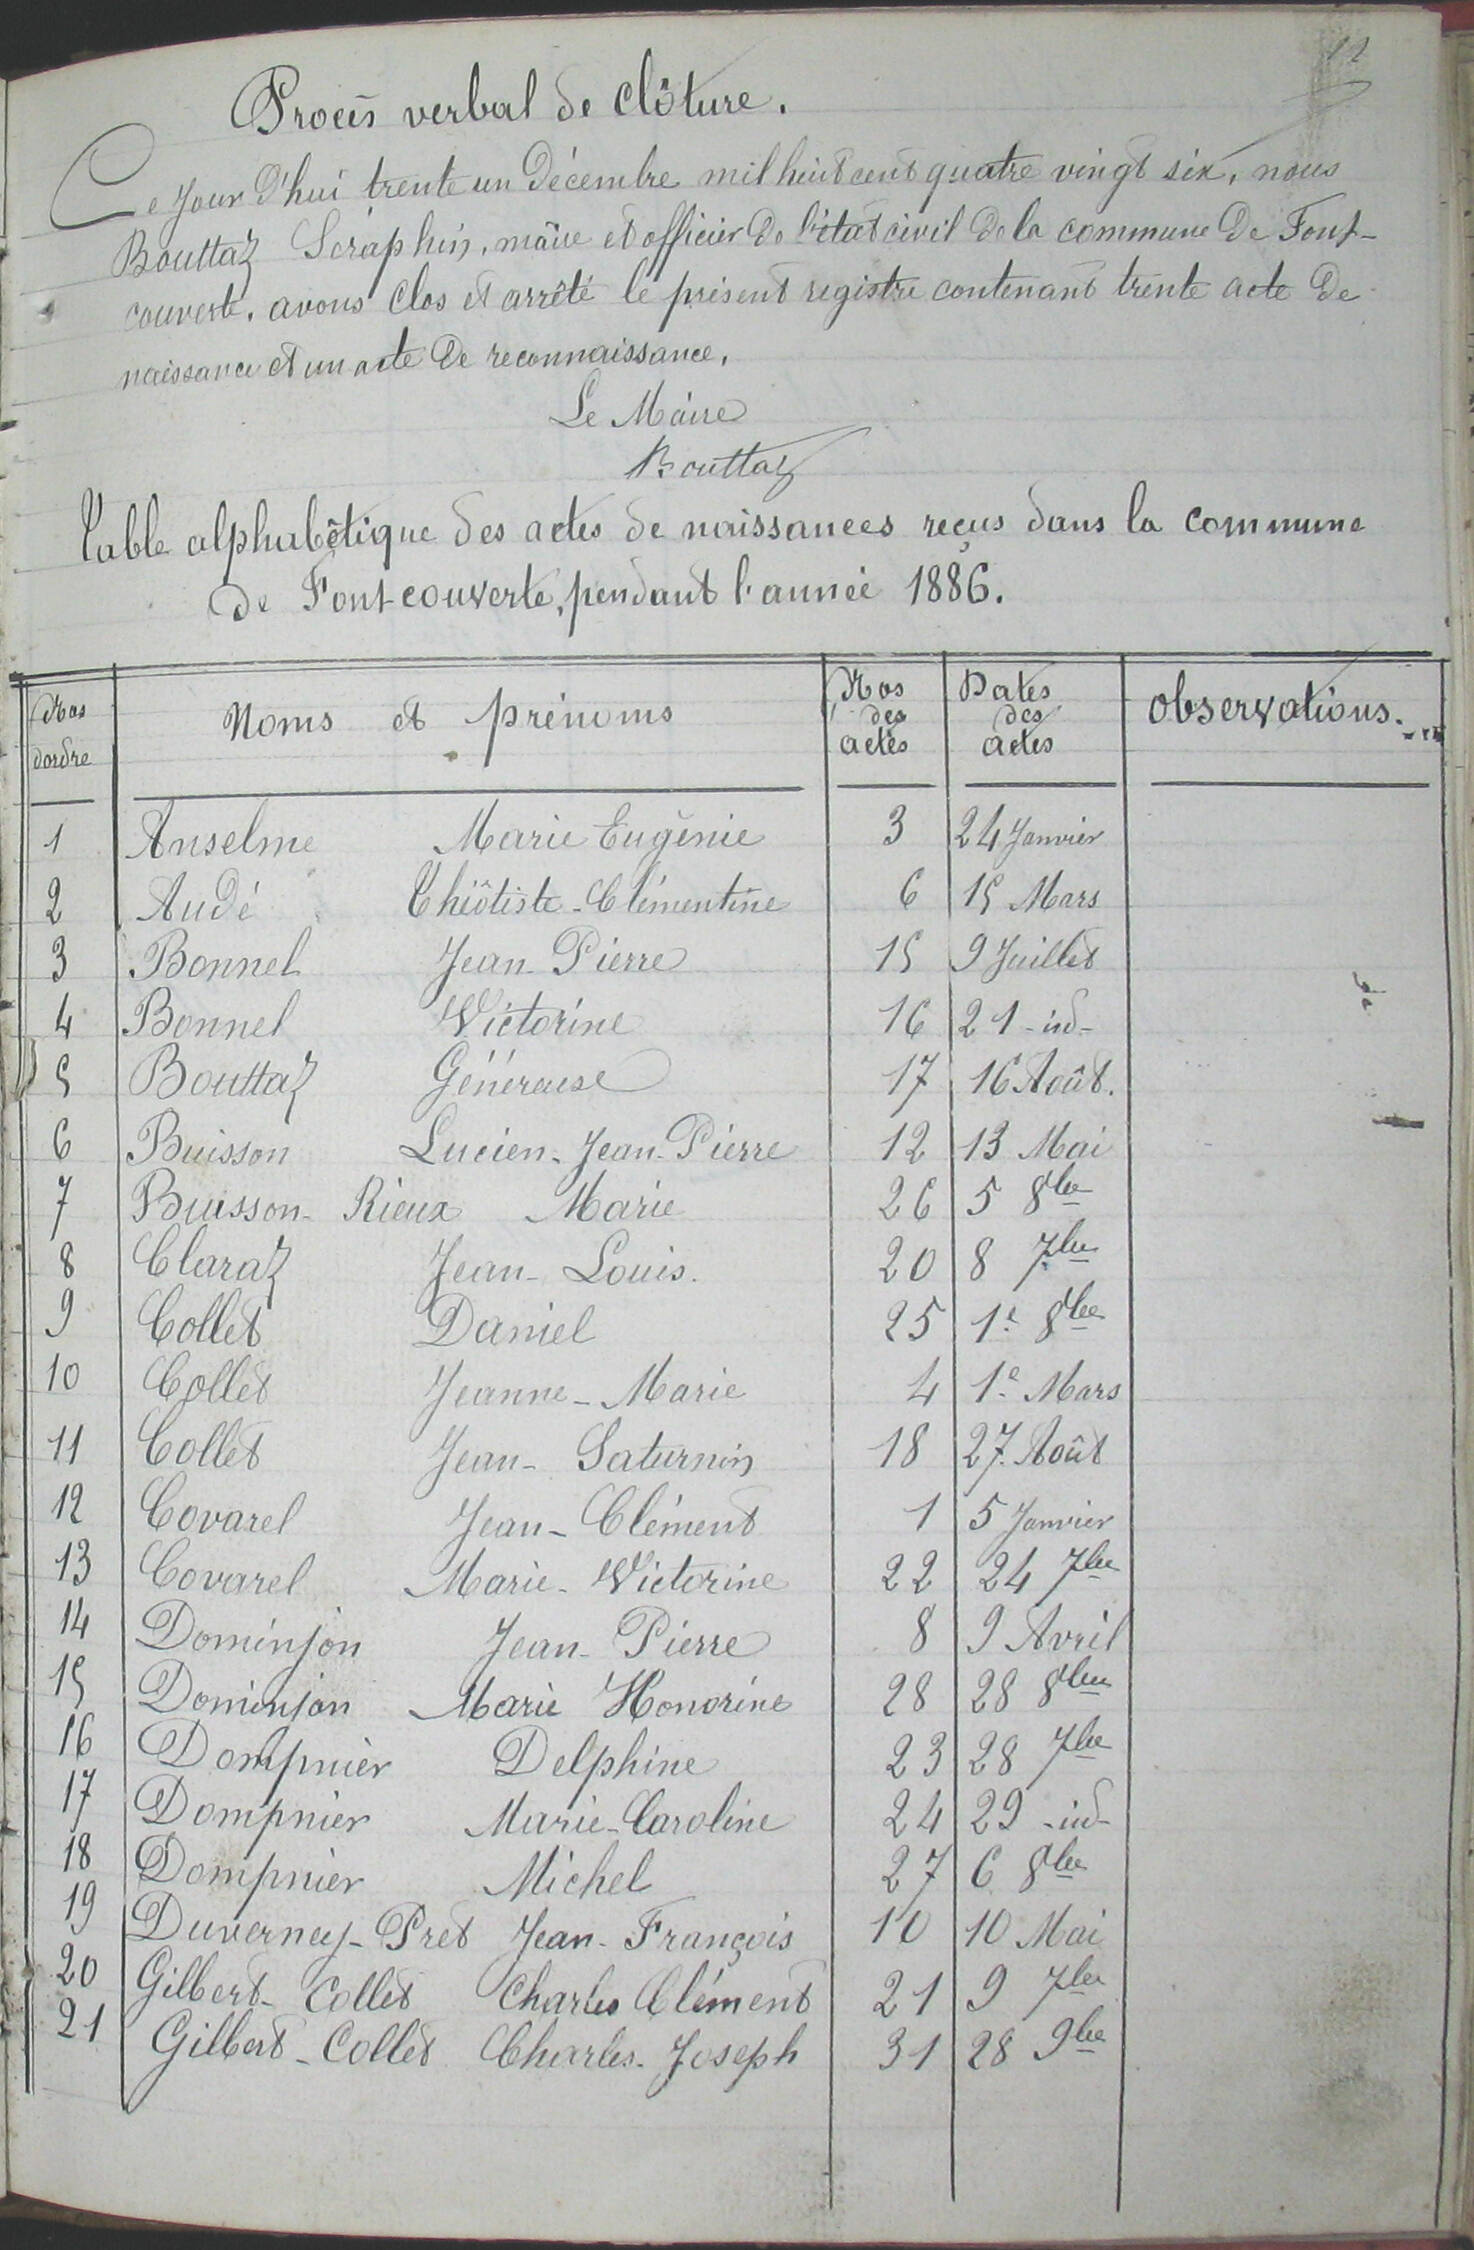 12
Procès verbal de clôture.
Ce Jour d'hui trente un Décembre mil huit cent quatre vingt six, nous
Bouttaz Séraphin, maire et officier de l'état civil de la commune de Font-
couverte, avons clos et arrêté le présent registre contenant trente acte de
naissance et un acte de reconnaissance.
Le Maire
Bouttaz
Table alphabétique des actes de naissances reçus dans la commune
de Fontcouverte, pendant l'année 1886.
Nos dordre Noms et prénoms Nos des actes Dates des actes observations.
1 Anselme Marie Eugénie 3 24 Janvier
2 Audé Théotiste-Clémentine 6 15 Mars
3 Bonnel Jean-Pierre 15 9 Juillet
4 Bonnel Victorine 16 21 -id-
5 Bouttaz Généreuse 17 16 Août.
6 Buisson Lucien-Jean-Pierre 12 13 Mai
7 Buisson-Rieux Marie 26 5 8bre
8 Claraz Jean-Louis. 20 8 7bre
9 Collet Daniel 25 1e 8bre
10 Collet Jeanne-Marie 4 1e Mars
11 Collet Jean-Saturnin 18 27 Août
12 Covarel Jean-Clément 1 5 Janvier
13 Covarel Marie-Victorine 22 24 7bre
14 Dominjon Jean-Pierre 8 9 Avril
15 Dominjon Marie Honorine 28 28 8bre
16 Dompnier Delphine 23 28 7bre
17 Dompnier Marie-Caroline 24 29 -id-
18 Dompnier Michel 27 6 8bre
19 Duverney-Pret Jean-François 10 10 Mai
20 Gilbert-Collet Charles Clément 21 9 7bre
21 Gilbert-Collet Charles-Joseph 31 28 9bre